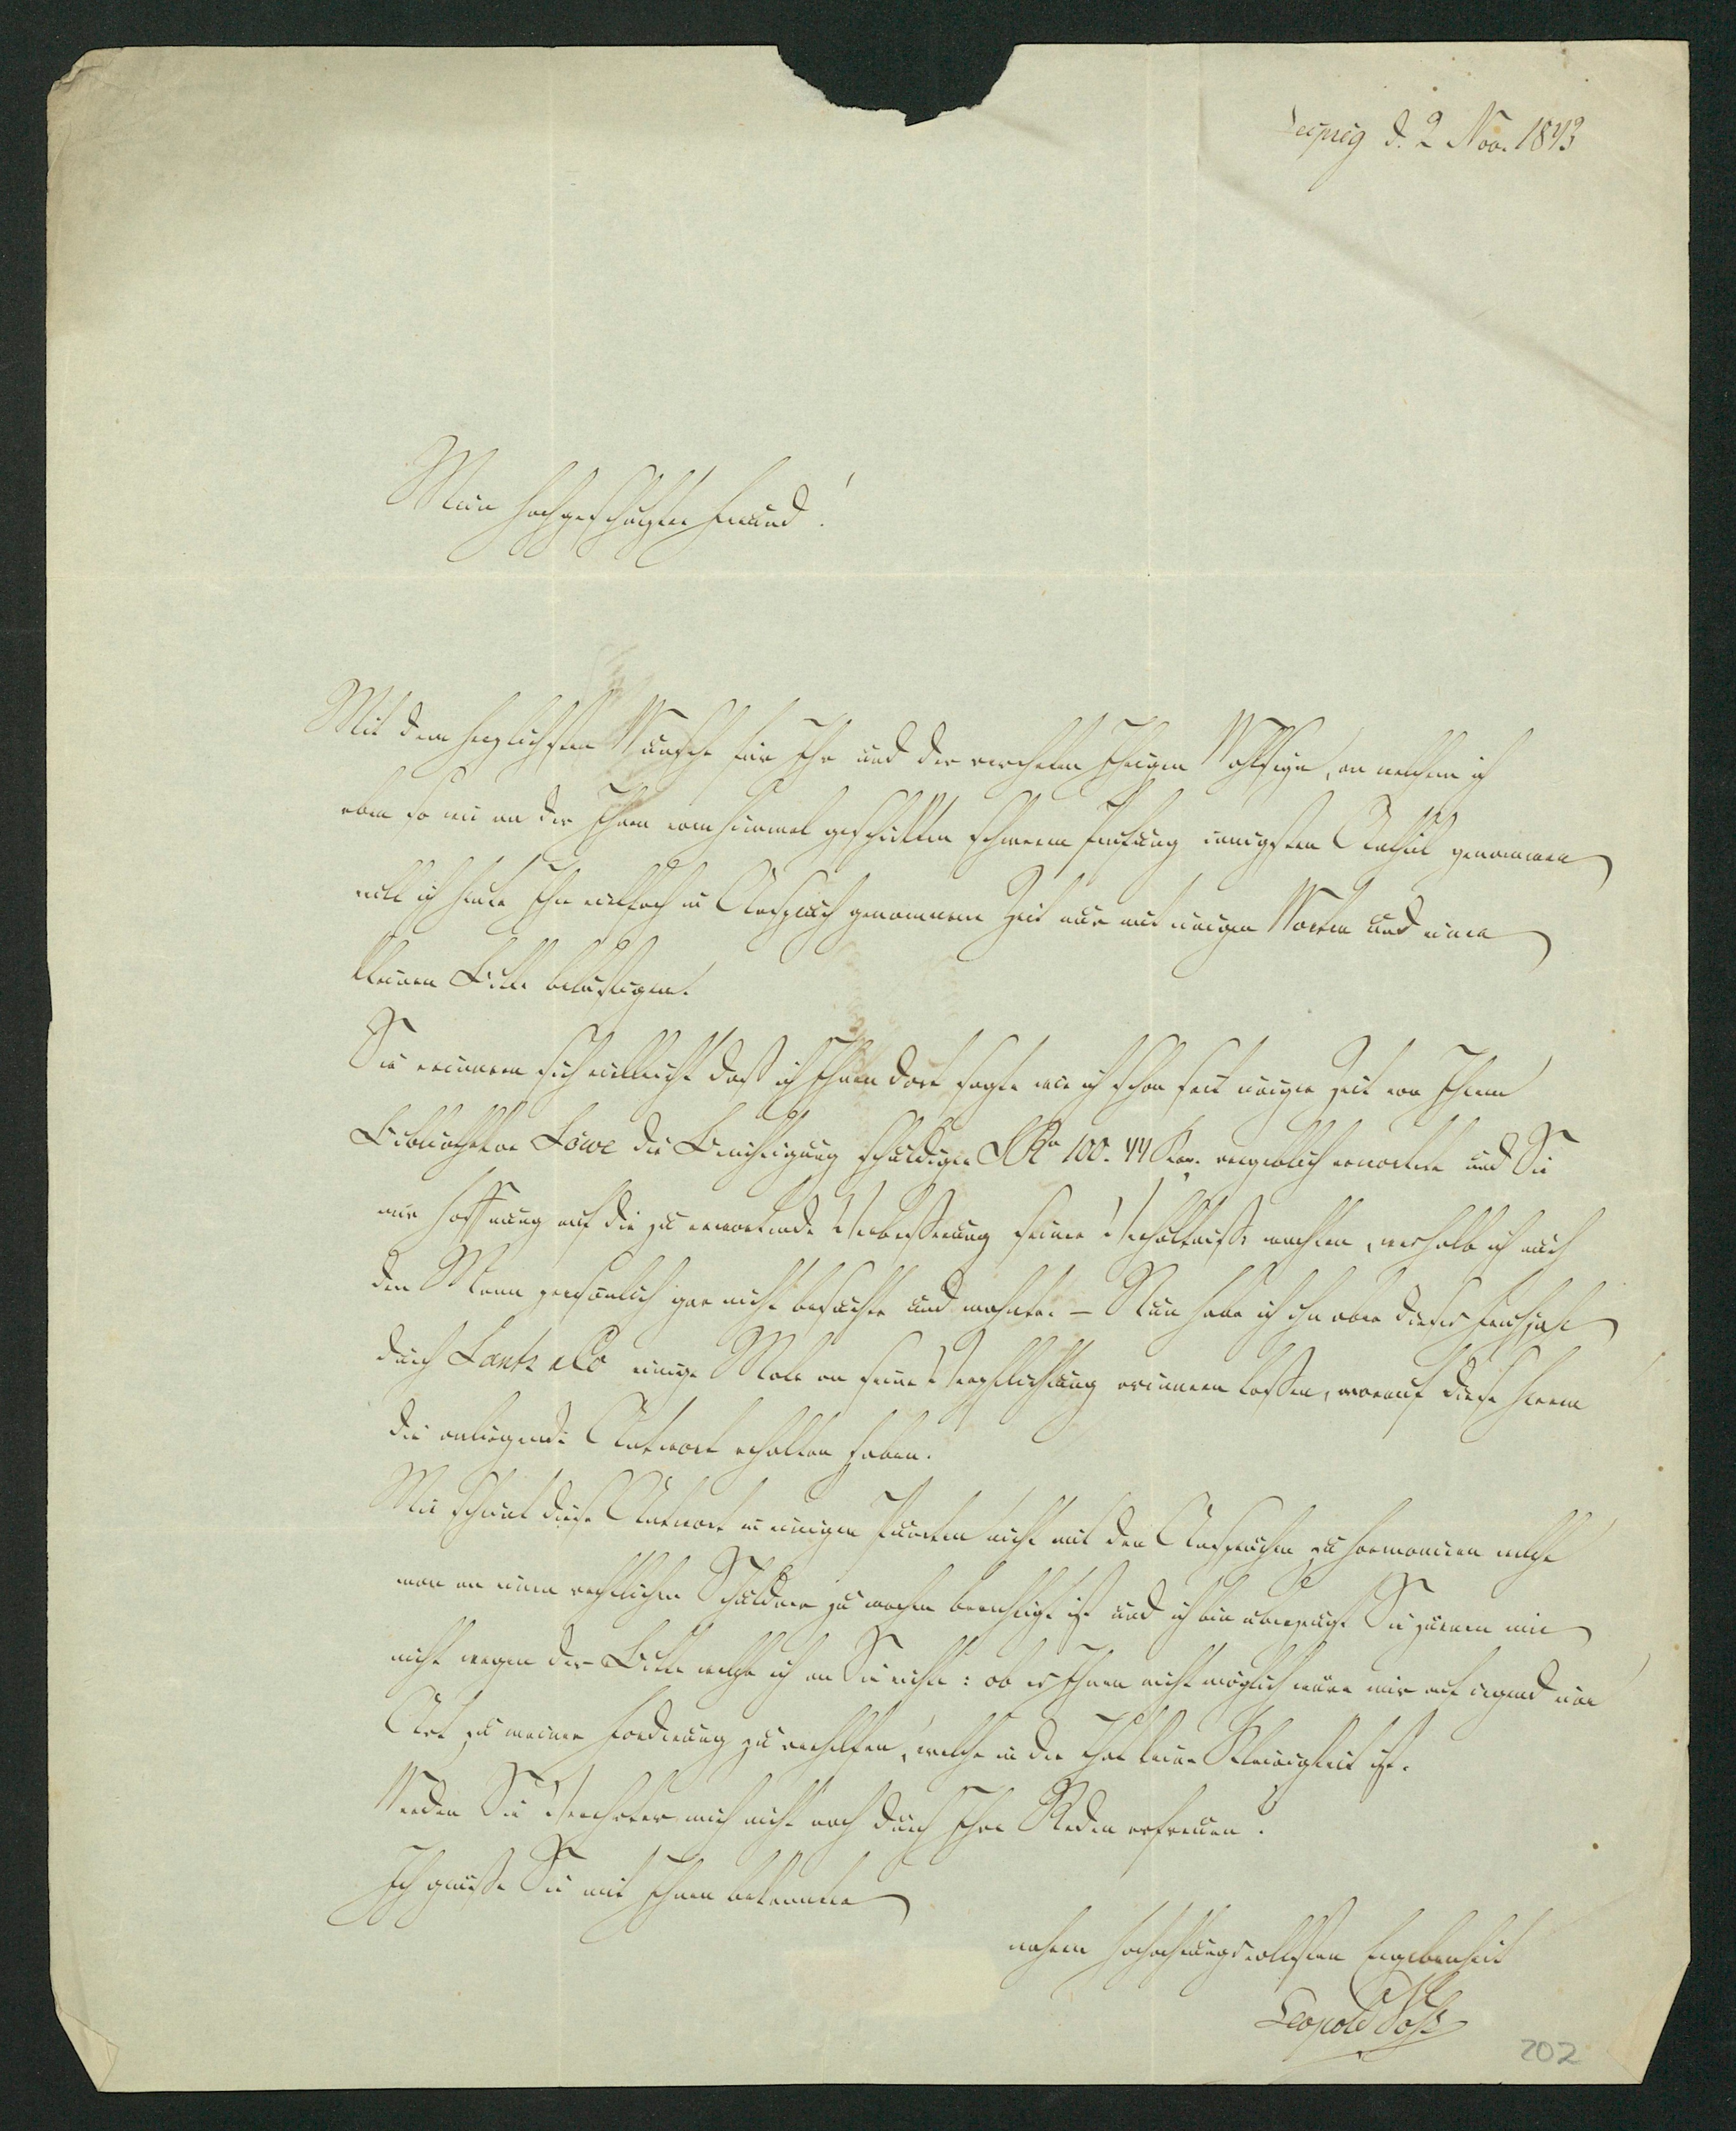 Leipzig d. 2 Nov. 1843
Mein hochgeschätzter Freund!
Mit dem herzlichsten Wunsche für Ihr und der verehrten Ihrigen Wohlseyn, an welchem ich
eben so wie an der Ihnen vom Himmel geschickten schweren Prüfung innigsten Antheil genommen
will ich heute Ihre vielfach in Anspruch genommene Zeit nur mit einigen Worten und einer
kleinen Bitte belästigen.
Sie erinnern sich vielleicht daß ich Ihnen dort sagte wie ich schon seit einiger Zeit von Ihrem
Bibliothekar Löwe die Berichtigung schuldiger SRo 100. 44 Kop. vergeblich erwartete und Sie
mir Hoffnung auf die zu erwartende Verbesserung seiner Verhältnisse machten, weshalb ich auch
den Mann persönlich gar nicht besuchte und mahnte. – Nun habe ich ihn aber dieses Frühjahr
durch Lantz & Co einige Male an seine Verpflichtung erinnern lassen, worauf diese Herren
die anliegende Antwort erhalten haben.
Mir scheint diese Antwort in einigen Punkten nicht mit den Ansprüchen zu harmoniren welche
man an einen rechtlichen Schuldner zu machen berechtigt ist und ich bin überzeugt Sie zürnen mir
nicht wegen der Bitte welche ich an Sie richte: ob es Ihnen nicht möglich wäre mir auf irgend eine
Art zu meiner Forderung zu verhelfen, welche in der That keine Kleinigkeit ist.
Werden Sie Verehrter mich nicht noch durch Ihre Reden erfreuen?
Ich grüße Sie mit Ihnen bekannter
wahren hochachtungsvollsten Ergebenheit
Leopold Voß
202